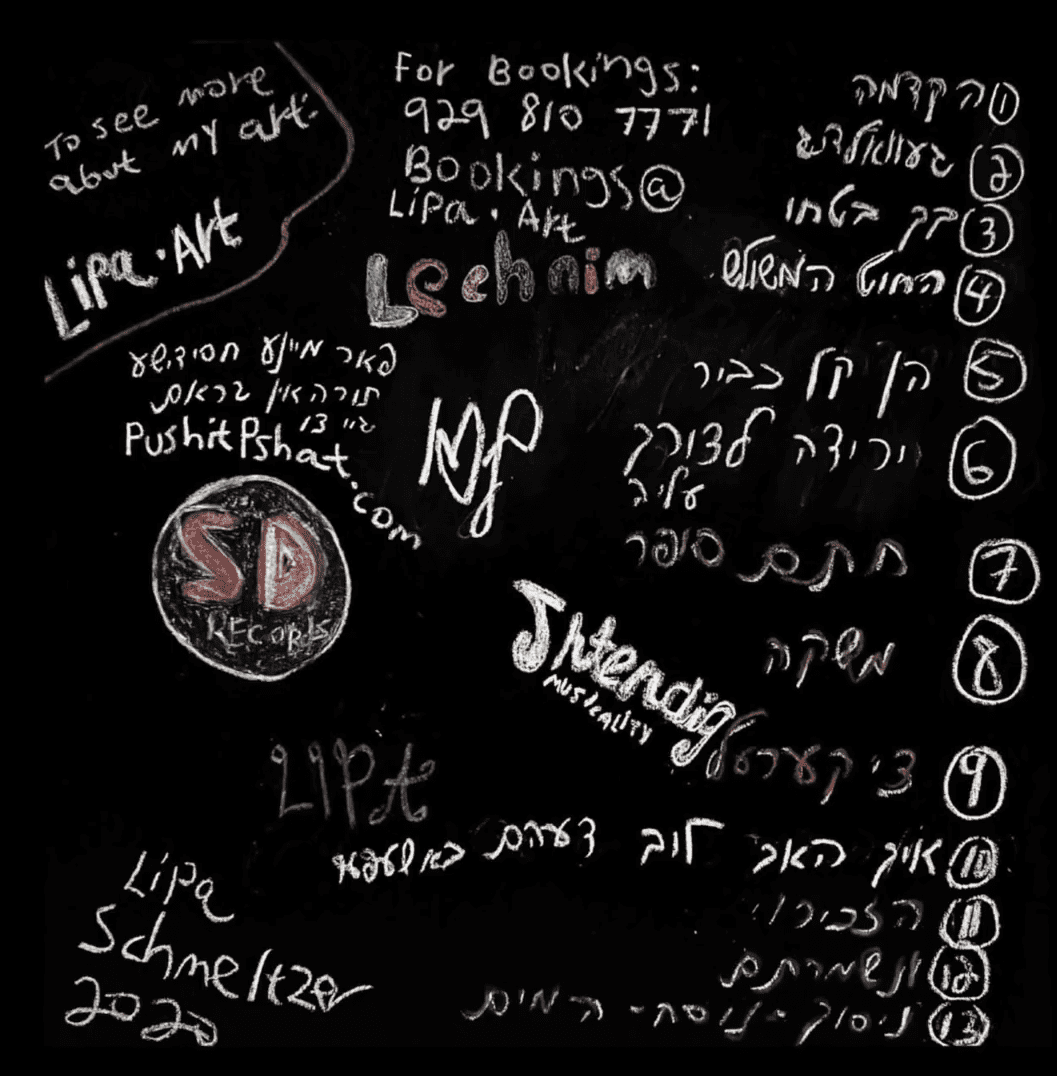 To see more
abut my art:
Lipa.Art
For Bookings:
929 810 7771
Bookings@
Lipa.Art
Lechaim
פאר מיינע חסידישע
תורה אין
גיי צו
PushitPshat.com
SD
RECORDS
Shtendig
MUSICALITY
LIPA
Lipa
Schmeltzer
2020
1 הקדמה
2 געוואלדיג
3 בך בטחו
4 החוט המשולש
5 הן קל כביר
6 ירידה לצורך
עליה
7 חתם סופר
8 משקה
9 די קערעל
10 איך האב ליב דעם באשעפער
11 הצבירוי
12 ונשמרתם
13 ניסוך - ניסה - המים